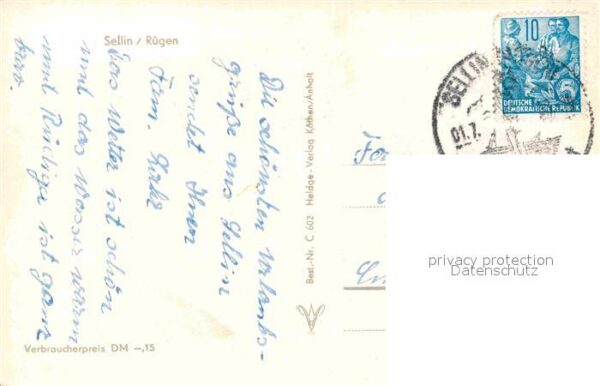 Sellin / Rügen
Die schönsten Urlaubs-
grüße aus Sellin
sendet Ihnen
Fam.
Das Wetter ist schön
und das Wasser warm
und ist ganz
brav.
Verbraucherpreis DM –,15
Best.-Nr. C 602 Heldge-Verlag Köthen/Anhalt
10
DEUTSCHE
DEMOKRATISCHE REPUBLIK
5
SELLIN
01.7.
privacy protection
Datenschutz